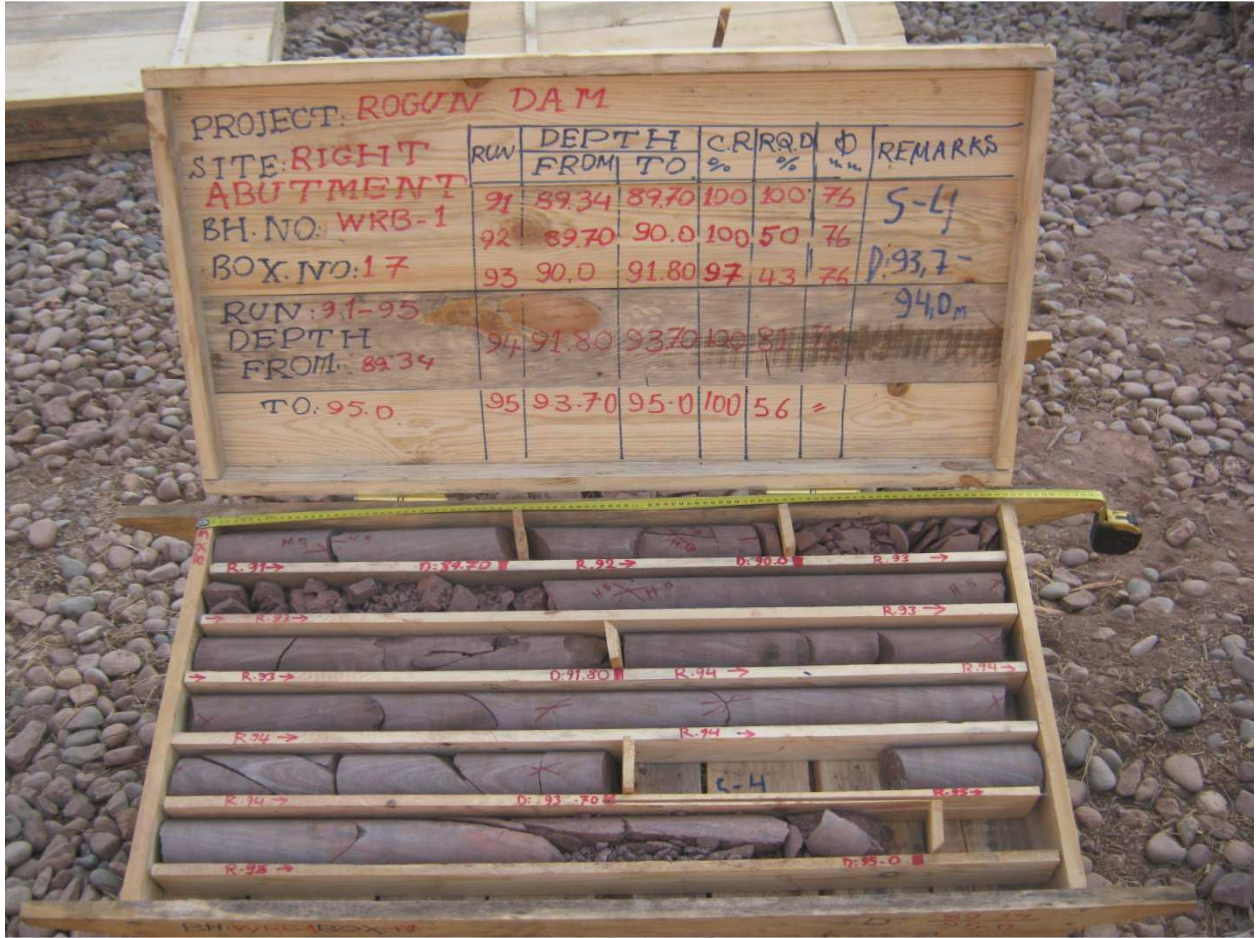 PROJECT: ROGUN DAM
SITE: RIGHT
ABUTMENT
BH. NO: WRB-1
BOX. NO: 17
RUN: 91-95
DEPTH
FROM: 89.34
TO: 95.0
RUN DEPTH C.R RQ.D Φ REMARKS
FROM TO % % mm
91 89.34 89.70 100 100 76 S-4
92 89.70 90.0 100 50 76
93 90.0 91.80 97 43 76 D:93,7-
94,0m
94 91.80 93.70 100 81
95 93.70 95.0 100 56 =
H.B H.B H.B
R.91→ D:89.70 R.92→ D:90.0 R.93→
H.B H.B H.B
→ R.93→ R.93→
→ R.93→ D:91.80 R.94→ R.94→
R.94→ R.94→
S-4
R.94→ D: 93.70 R.95→
R.95→ D:95.0
BH:WRB-1 BOX:17 D: